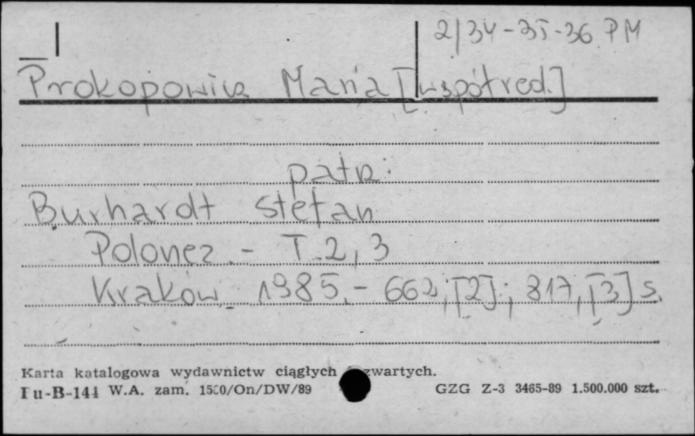 2/34-35-36 PM
Prokopowicz Maria [współred.]
patrz:
Burhardt Stefan
Polonez. - T. 2, 3
Kraków 1985. - 662, [2]; 817, [3] s.
Karta katalogowa wydawnictw ciągłych zwartych.
Pu-B-144 W.A. zam. 1500/On/DW/89 GZG Z-3 3465-89 1.500.000 szt.